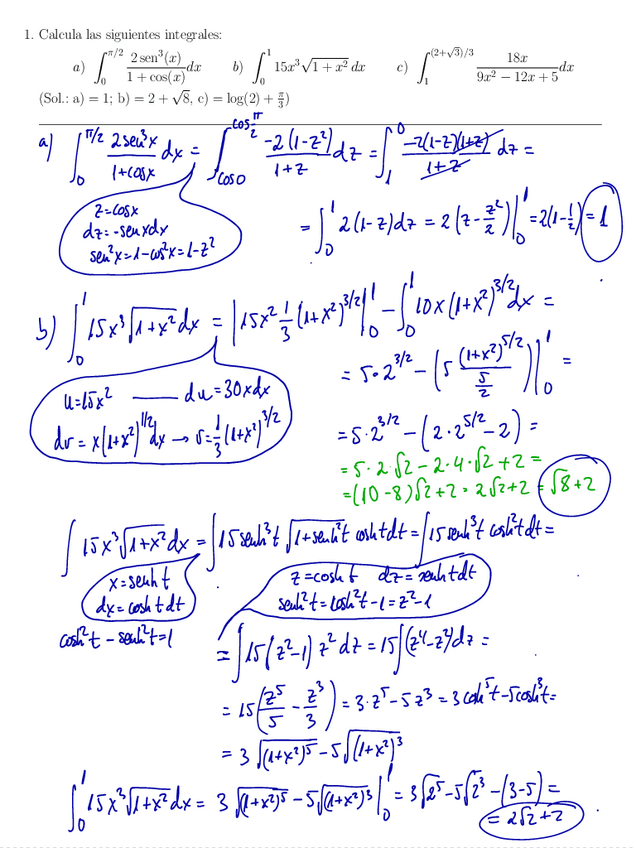 1. Calcula las siguientes integrales:
a) ∫_0^{π/2} 2 sen³(x) / (1 + cos(x)) dx   b) ∫_0^1 15x³√(1 + x²) dx   c) ∫_1^{(2+√3)/3} 18x / (9x² − 12x + 5) dx
(Sol.: a) = 1; b) = 2 + √8, c) = log(2) + π/3)
a) ∫_0^{π/2} 2sen³x / (1+cosx) dx = ∫_{cos0}^{cos π/2} −2(1−z²) / (1+z) dz = ∫_1^0 −2(1−z)(1+z) / (1+z) dz =
z=cosx
dz=−senxdx
sen²x=1−cos²x=1−z²
= ∫_0^1 2(1−z)dz = 2(z−z²/2)|_0^1 = 2(1−1/2) = 1
b) ∫_0^1 15x³√(1+x²) dx = |15x² 1/3 (1+x²)^{3/2}|_0^1 − ∫_0^1 10x(1+x²)^{3/2} dx =
u=15x² — du=30xdx
dv=x(1+x²)^{1/2}dx → v=1/3(1+x²)^{3/2}
= 5·2^{3/2} − (5 (1+x²)^{5/2} / (5/2))|_0^1 =
= 5·2^{3/2} − (2·2^{5/2} − 2) =
= 5·2·√2 − 2·4·√2 + 2 =
= (10−8)√2+2 = 2√2+2 = √8+2
∫ 15x³√(1+x²) dx = ∫ 15senh³t √(1+senh²t) cosht dt = ∫ 15senh³t cosh²t dt =
x=senh t
dx=cosh t dt
cosh²t − senh²t=1
z=cosh t   dz=senht dt
senh²t=cosh²t−1=z²−1
= ∫ 15(z²−1) z² dz = 15∫(z⁴−z²)dz =
= 15(z⁵/5 − z³/3) = 3·z⁵−5z³ = 3cosh⁵t−5cosh³t=
= 3√((1+x²)⁵) − 5√((1+x²)³)
∫_0^1 15x³√(1+x²) dx = 3√((1+x²)⁵) − 5√((1+x²)³)|_0^1 = 3√2⁵−5√2³−(3−5) =
= 2√2+2